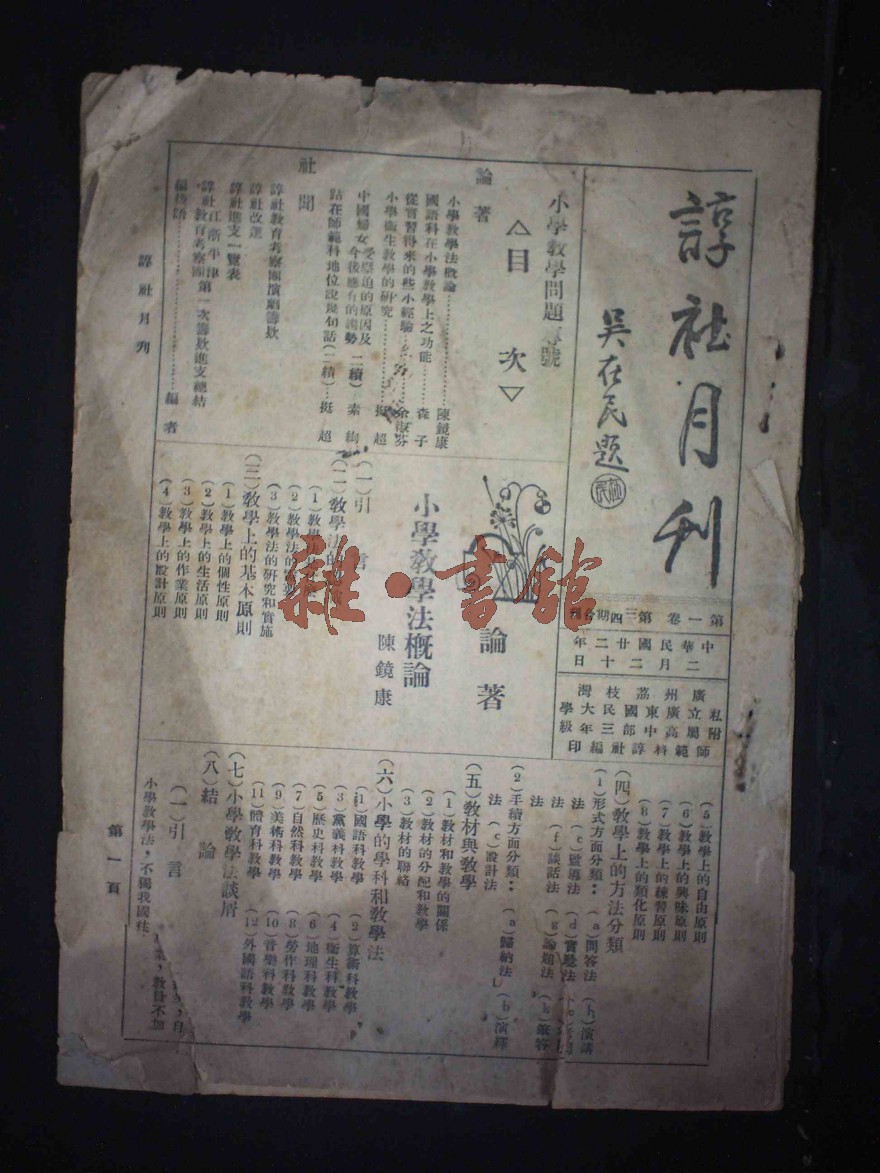 諄社月刋
吳在民題
第一卷 第三四期合刋
中華民國廿二年
二月二十日
廣州荔枝灣
私立廣東國民大學
附屬高中三年級
師範科諄社編印
小學敎學問題專號
△目 次▽
論著
小學敎學法概論……陳鏡康
國語科在小學敎學上之功能……森子
從實習得來的些小經驗……余淑芬
小學衛生敎學的研究……挺超
中國婦女受壓迫的原因及今後應有的 勢(二續)素絢
站在師範科地位說幾句話(二續)…挺超
社聞
諄社敎育考察團演劇籌欵
諄社改選
諄社進支一覽表
諄社江浙平津敎育考察團第一次籌欵進支總結
編後語……編者
論著
小學敎學法概論
陳鏡康
(一)引言
(二)敎學法的
(1)敎學法
(2)敎學法的
(3)敎學法的研究和實施
(三)敎學上的基本原則
(1)敎學上的個性原則
(2)敎學上的生活原則
(3)敎學上的作業原則
(4)敎學上的設計原則
(5)敎學上的自由原則
(6)敎學上的興味原則
(7)敎學上的練習原則
(8)敎學上的類化原則
(四)敎學上的方法分類
(1)形式方面分類:(a)問答法(b)演講
法(c)監導法(d)實驗法
法(f)談話法(g)論題法(h)
法
(2)手續方面分類:(a)歸納法(b)演繹
法(c)設計法
(五)敎材與敎學
(1)敎材和敎學的關係
(2)敎材的分配和敎學
(3)敎材的聯絡
(六)小學的學科和敎學法
(1)國語科敎學 (2)算術科敎學
(3)黨義科敎學 (4)衛生科敎學
(5)歷史科敎學 (6)地理科敎學
(7)自然科敎學 (8)勞作科敎學
(9)美術科敎學 (10)音樂科敎學
(11)體育科敎學 (12)外國語科敎學
(七)小學敎學法談屑
(八)結論
(一)引言
小學敎學法,不獨我國往
敎員不加
諄社月刋
第一頁
雜·書館